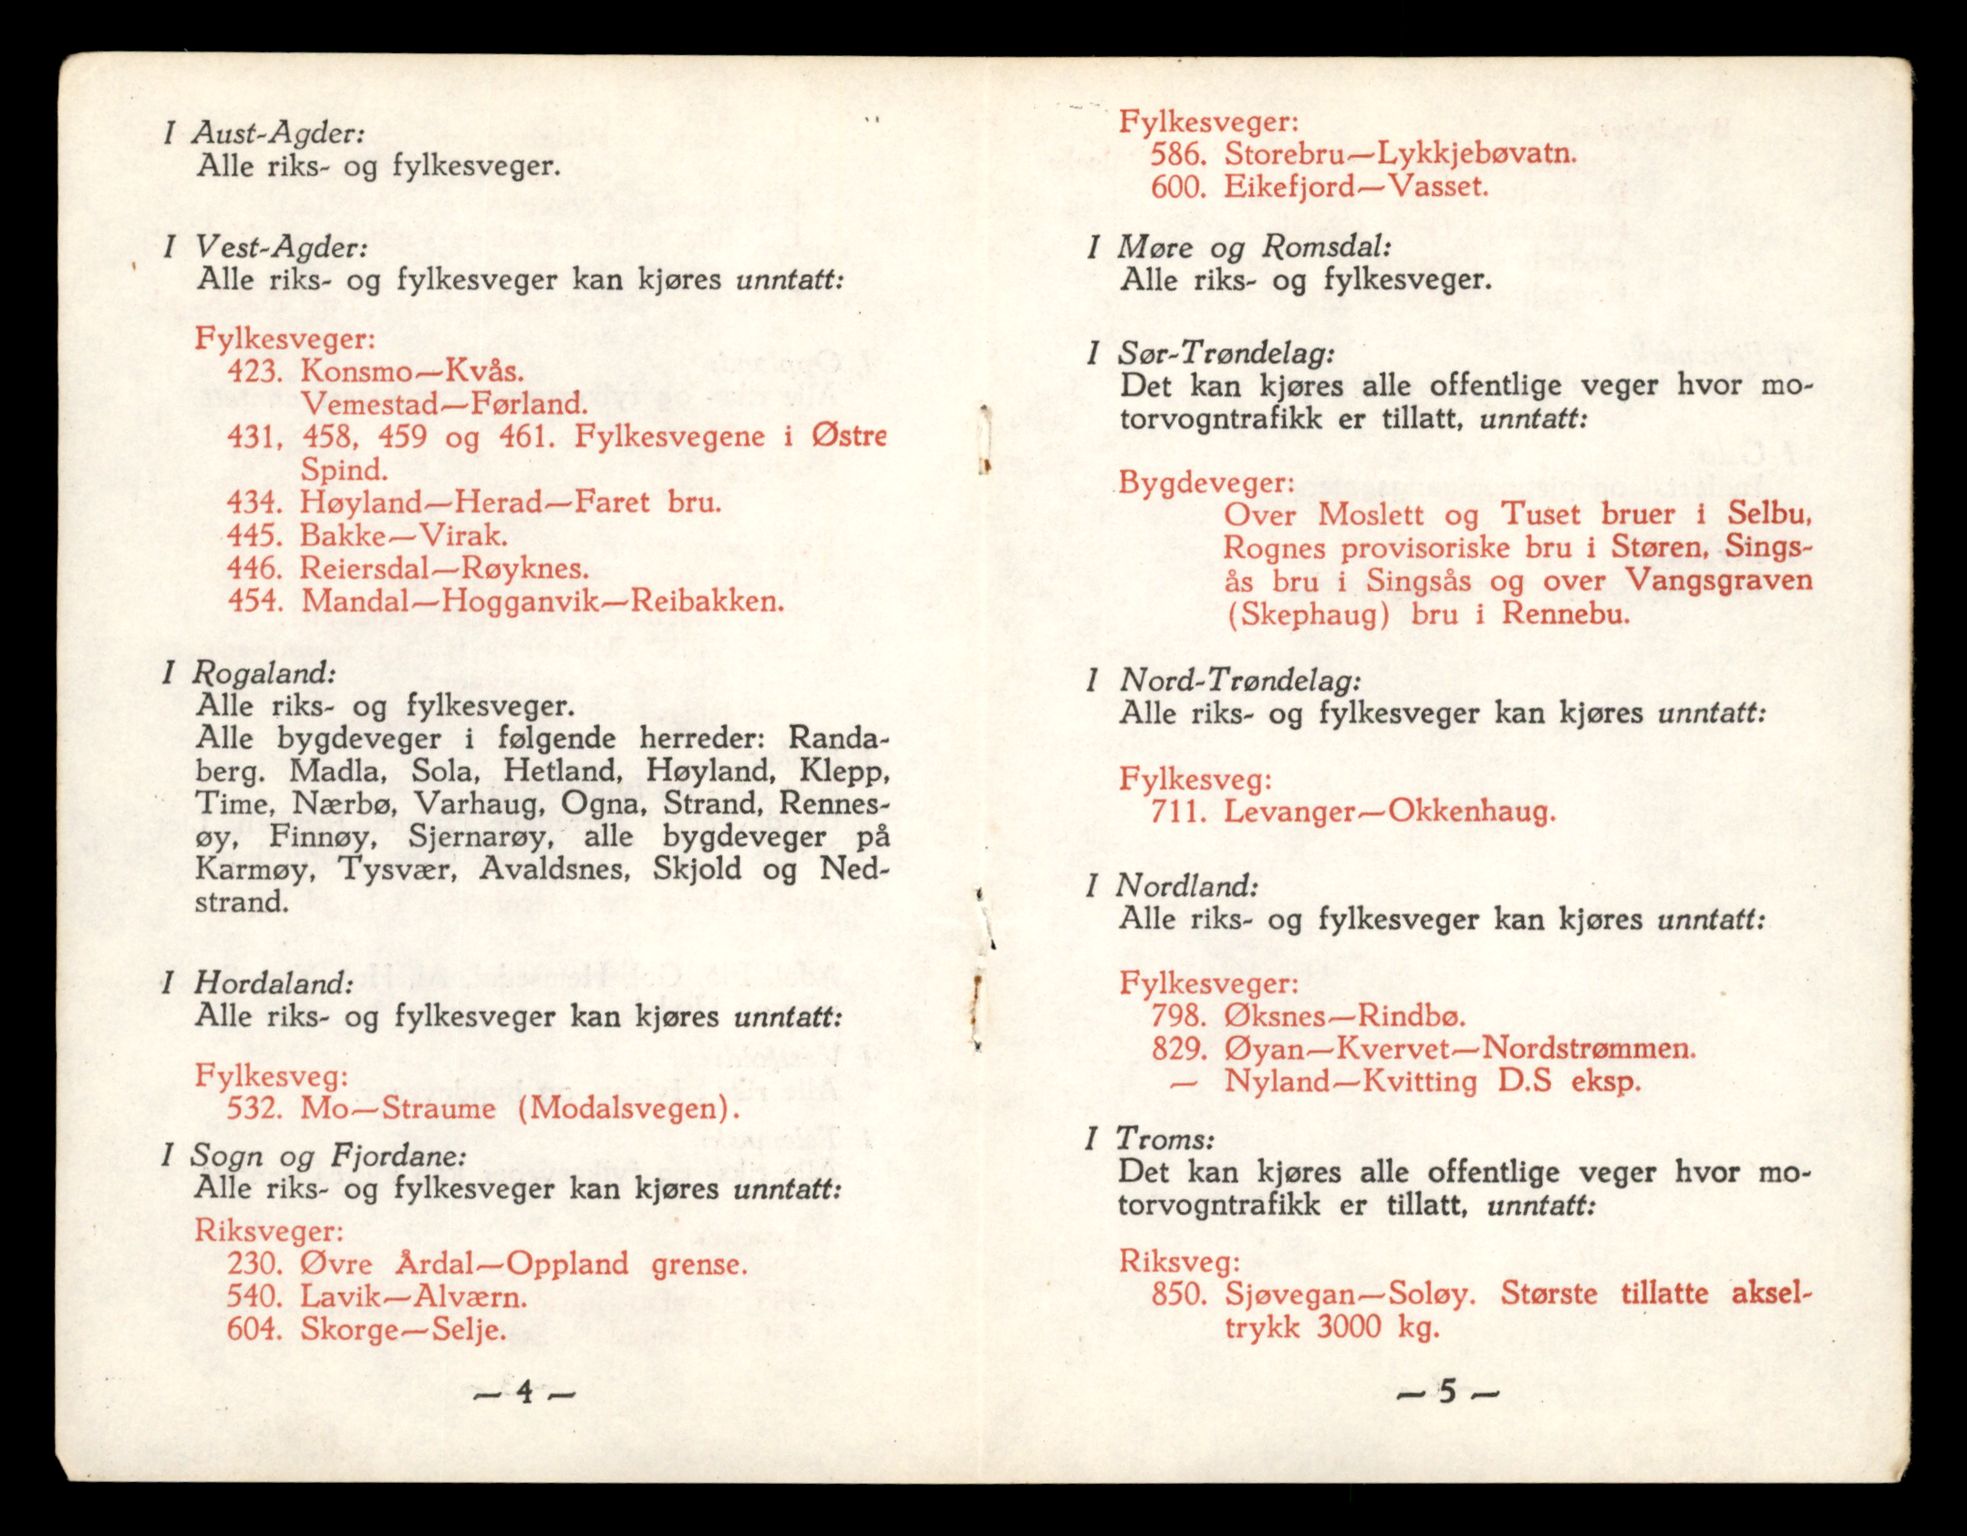 I Aust-Agder:
Alle riks- og fylkesveger.
I Vest-Agder:
Alle riks- og fylkesveger kan kjøres unntatt:
Fylkesveger:
423. Konsmo—Kvås.
Vemestad—Førland.
431, 458, 459 og 461. Fylkesvegene i Østre
Spind.
434. Høyland—Herad—Faret bru.
445. Bakke—Virak.
446. Reiersdal—Røyknes.
454. Mandal—Hogganvik—Reibakken.
I Rogaland:
Alle riks- og fylkesveger.
Alle bygdeveger i følgende herreder: Randa-
berg. Madla, Sola, Hetland, Høyland, Klepp,
Time, Nærbø, Varhaug, Ogna, Strand, Rennes-
øy, Finnøy, Sjernarøy, alle bygdeveger på
Karmøy, Tysvær, Avaldsnes, Skjold og Ned-
strand.
I Hordaland:
Alle riks- og fylkesveger kan kjøres unntatt:
Fylkesveg:
532. Mo—Straume (Modalsvegen).
I Sogn og Fjordane:
Alle riks- og fylkesveger kan kjøres unntatt:
Riksveger:
230. Øvre Årdal—Oppland grense.
540. Lavik—Alværn.
604. Skorge—Selje.
— 4 —
Fylkesveger:
586. Storebru—Lykkjebøvatn.
600. Eikefjord—Vasset.
I Møre og Romsdal:
Alle riks- og fylkesveger.
I Sør-Trøndelag:
Det kan kjøres alle offentlige veger hvor mo-
torvogntrafikk er tillatt, unntatt:
Bygdeveger:
Over Moslett og Tuset bruer i Selbu,
Rognes provisoriske bru i Støren, Sings-
ås bru i Singsås og over Vangsgraven
(Skephaug) bru i Rennebu.
I Nord-Trøndelag:
Alle riks- og fylkesveger kan kjøres unntatt:
Fylkesveg:
711. Levanger—Okkenhaug.
I Nordland:
Alle riks- og fylkesveger kan kjøres unntatt:
Fylkesveger:
798. Øksnes—Rindbø.
829. Øyan—Kvervet—Nordstrømmen.
— Nyland—Kvitting D.S eksp.
I Troms:
Det kan kjøres alle offentlige veger hvor mo-
torvogntrafikk er tillatt, unntatt:
Riksveg:
850. Sjøvegan—Soløy. Største tillatte aksel-
trykk 3000 kg.
— 5 —